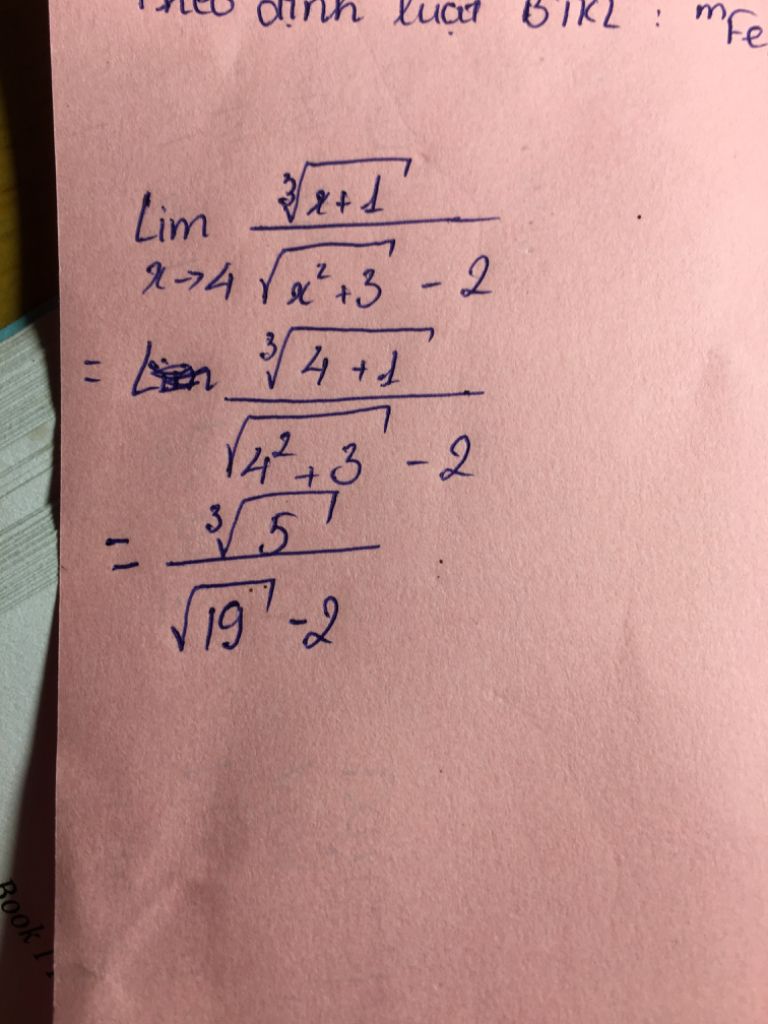 Theo định luật BTKL : mFe
Lim ∛(x+1)
x→4 √(x²+3) - 2
= ∛(4+1)
√(4²+3) - 2
= ∛5
√19 - 2
Book 1